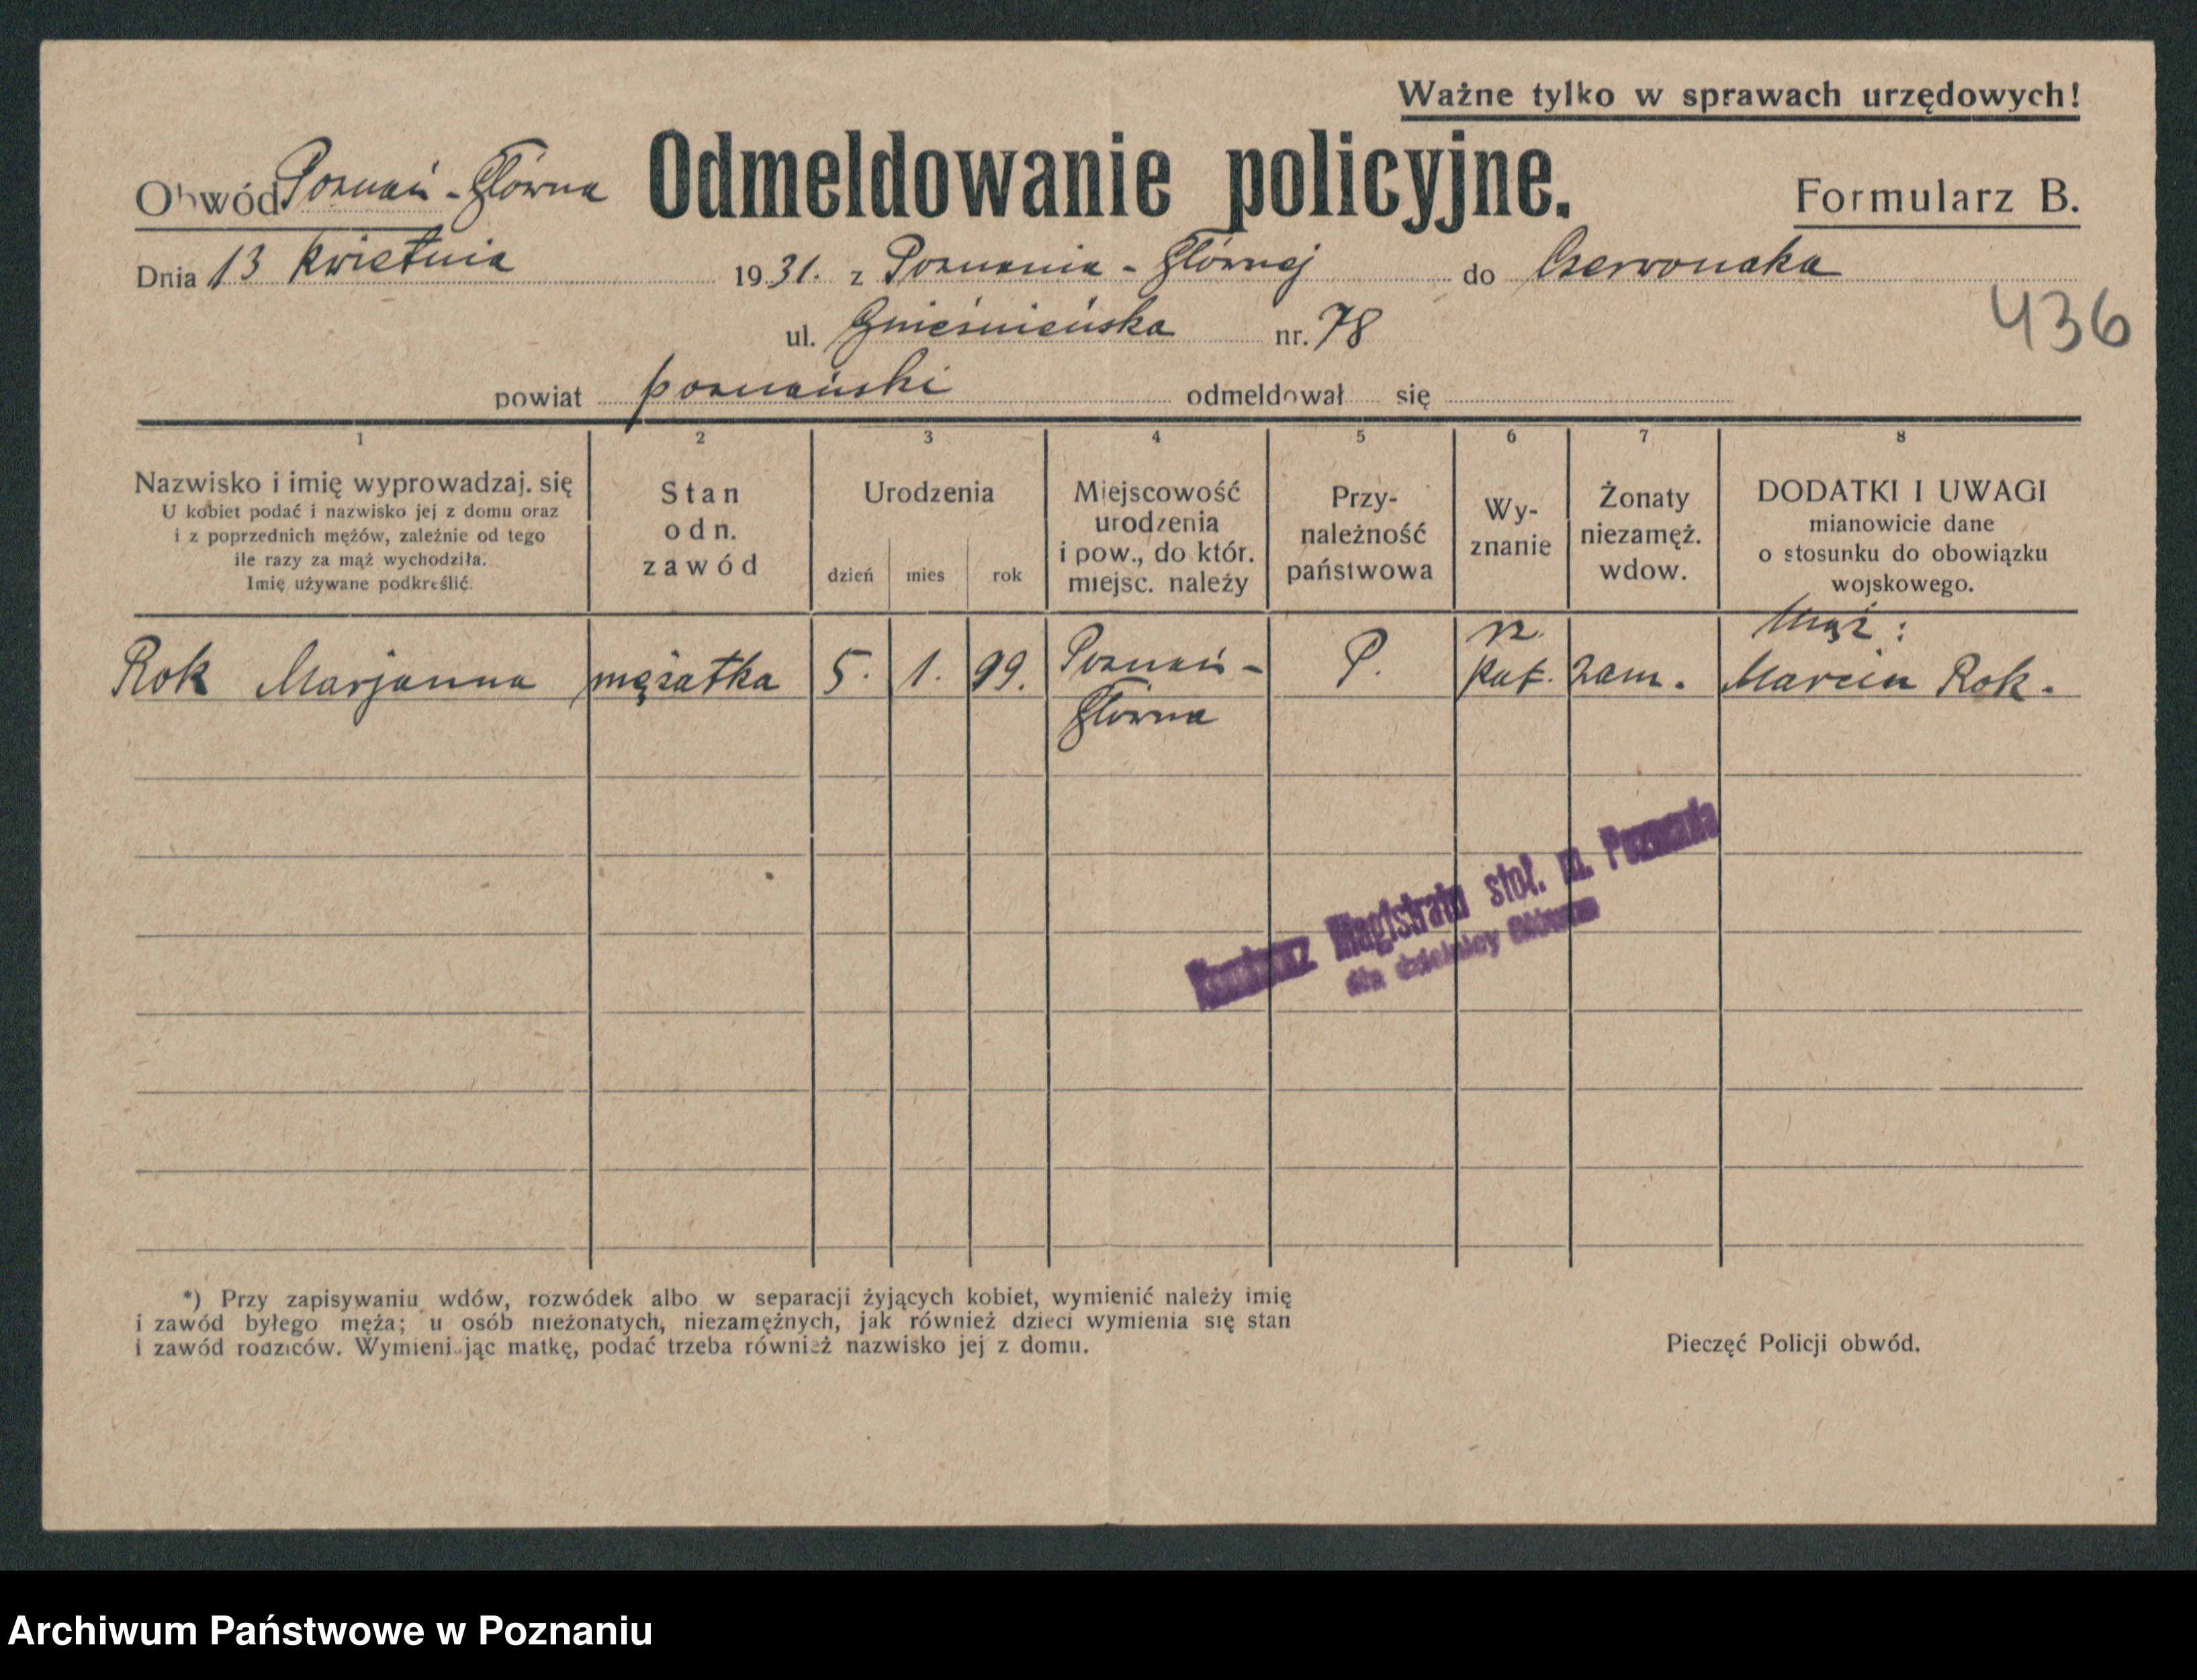 Ważne tylko w sprawach urzędowych!
Obwód Poznań-Główna Odmeldowanie policyjne. Formularz B.
Dnia 13 kwietnia 1931. z Poznania-Głównej do Czerwonaka
436
ul. Gnieźnieńska nr. 78
powiat poznański odmeldował się
1 2 3 4 5 6 7 8
Nazwisko i imię wyprowadzaj. się
U kobiet podać i nazwisko jej z domu oraz
i z poprzednich mężów, zależnie od tego
ile razy za mąż wychodziła.
Imię używane podkreślić.
Stan
odn.
zawód
Urodzenia
dzień mies rok
Miejscowość
urodzenia
i pow., do któr.
miejsc. należy
Przy-
należność
państwowa
Wy-
znanie
Żonaty
niezamęż.
wdow.
DODATKI I UWAGI
mianowicie dane
o stosunku do obowiązku
wojskowego.
Rok Marjanna mężatka 5. 1. 99. Poznań-Główna P. rz. kat. zam. Mąż:
Marcin Rok.
Magistratu stoł. m. Poznania
dla dzielnicy Główna
*) Przy zapisywaniu wdów, rozwódek albo w separacji żyjących kobiet, wymienić należy imię
i zawód byłego męża; u osób nieżonatych, niezamężnych, jak również dzieci wymienia się stan
i zawód rodziców. Wymieniając matkę, podać trzeba również nazwisko jej z domu.
Pieczęć Policji obwód.
Archiwum Państwowe w Poznaniu